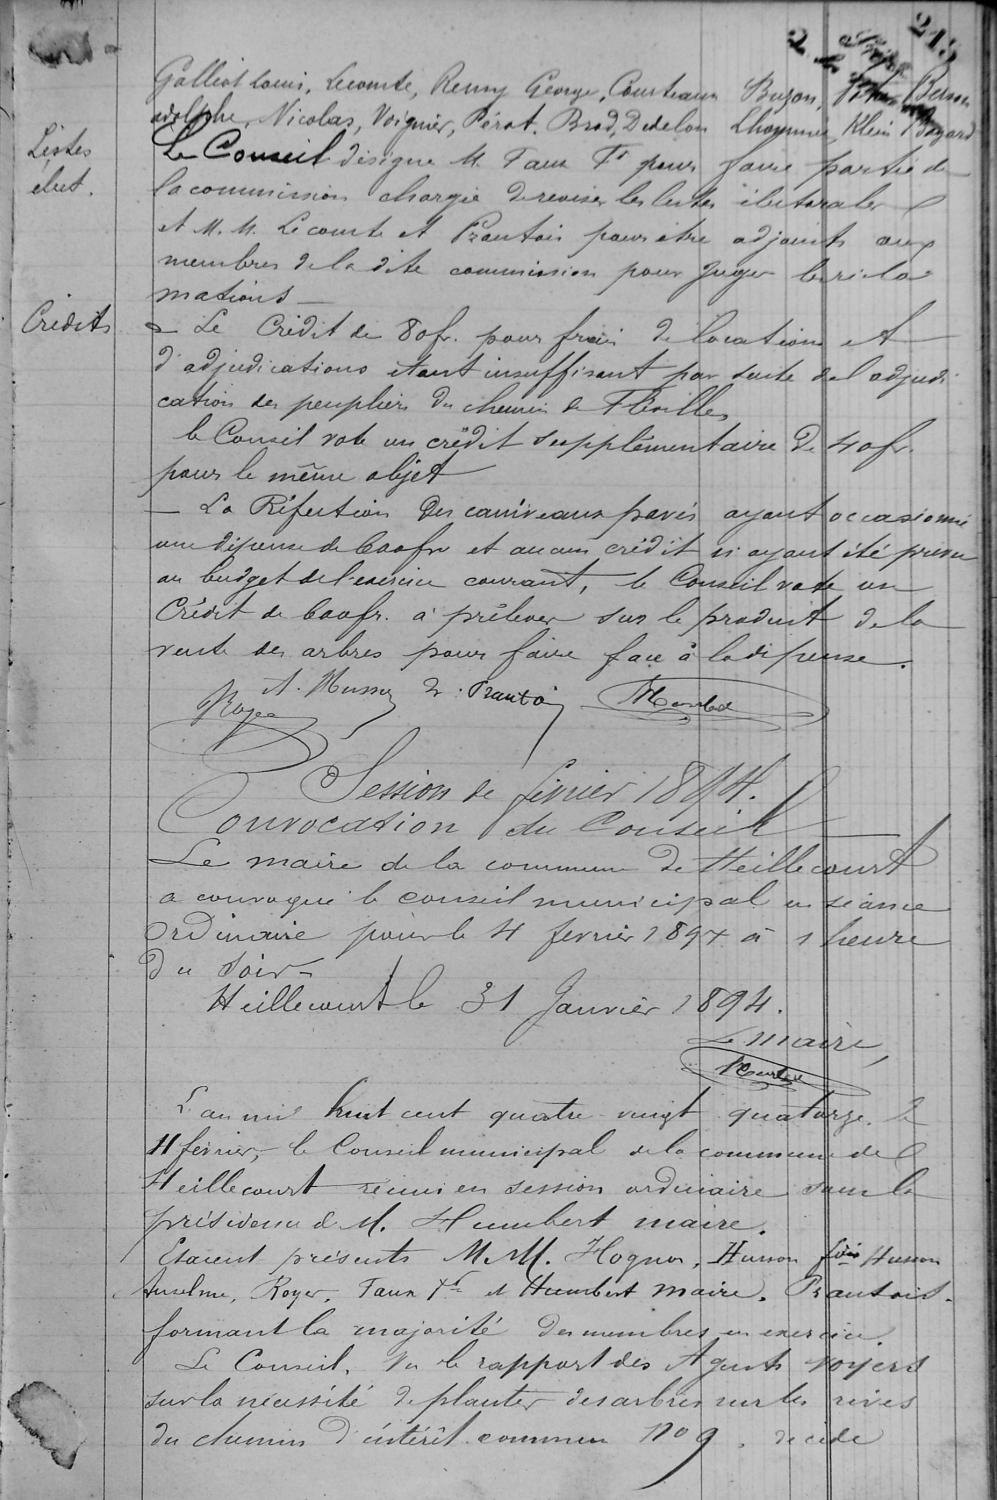 213
Galliot Louis, Lecomte, Remy George, Courteaux Buzon, Berson
adolphe, Nicolas, Voignier, Pérot, Brod, Dedelon Lhommée, Klein Bogard
Listes
élect.
Le Conseil désigne M. Faux Fr pour faire partie de
la commission chargée de reviser les listes électorales
et M.M. Lecomte et Prautois pour être adjoints aux
membres de la dite commission pour juger les récla
mations —
Crédits
— Le Crédit de 80fr. pour frais de locations et
d'adjudications étant insuffisant par suite de l'adjudi
cation des peupliers du chemin de Fléville,
le Conseil vote un crédit supplémentaire de 40fr.
pour le même objet
— La Réfection des caniveaux pavés ayant occasionné
une dépense de 600fr et aucun crédit n'ayant été prévu
au budget de l'exercice courant, le Conseil vote un
Crédit de 600fr. à prélever sur le produit de la
vente des arbres pour faire face à la dépense.
Roger A. Husson Prautois Humbert
Session de février 1894.
Convocation du Conseil
Le maire de la commune de Heillecourt
a convoqué le conseil municipal en séance
ordinaire pour le 4 février 1894 à 1 heure
du soir
Heillecourt le 31 Janvier 1894.
Le maire,
Humbert
L'an mil huit cent quatre vingt quatorze, le
4 février, le Conseil municipal de la commune de
Heillecourt réuni en session ordinaire sous la
présidence de M. Humbert maire.
Etaient présents M.M. Hognon, Husson fois Husson
Anselme, Royer, Faux Fr et Humbert maire. Prautois.
formant la majorité des membres en exercice.
Le Conseil, Vu le rapport des Agents voyers
sur la nécessité de planter des arbres sur les rives
du chemin d'intérêt commun No 9, décide